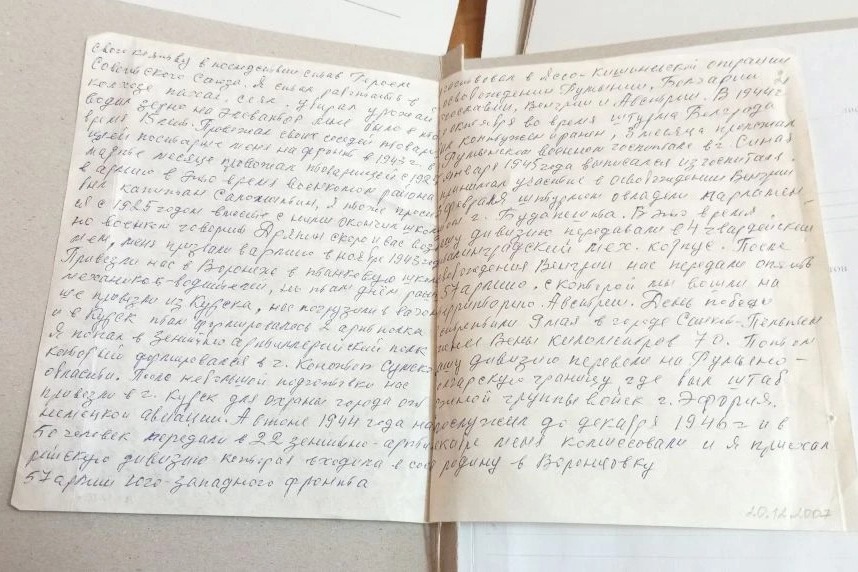 своего комвзвода в последствии став Героем
Советского Союза. Я стал работать в
колхозе пахал, сеял, убирал урожай
возил зерно на Элеватор
время 15 лет. Провожал своих
постарше меня на фронт в 1943 г. в
марте месяце провожал товарищей с 1925
в армию в это время военкомом района
был капитан Саломатин, я тоже
ся с 1925 годом вместе с ними окончил
но военком говорит Аряпин скоро и вас
меня призвали в армию в ноябре 1943 года
Привезли нас в Воронеж в танковую
механиков-водителей, но там днём
ше привезли из Курска, нас погрузили в
и в Курск там формировалось 2 арт полка
Я попал в Зенитно артиллерийский полк
который формировался в г. Конотоп Сумской
области. После небольшой подготовки нас
привезли в г. Курск для охраны города от
немецкой авиации. А в июне 1944 года
50 человек передали в 22 зенитно-
рийскую дивизию которая входила в
57 армии юго-западного фронта
участвовал в Ясско-Кишинёвской операции
освобождении Румынии, Болгарии
Югославии, Венгрии и Австрии. В 1944 г.
октября во время штурма Белграда
был контужен и ранен, 3 месяца пролежал
Румынском военном госпитале в г. Синая
января 1945 года выписался из госпиталя.
принимал участие в освобождении Венгрии
февраля штурмом овладели
г. Будапешта. В это время,
нашу дивизию передавали в 4 гвардейский
Сталинградский мех. корпус. После
освобождения Венгрии нас передали опять
57 армию, с которой мы вошли на
территорию Австрии. День победы
встретили 9 мая в городе Санкт-Пельтен
Вены километров 70. Потом
нашу дивизию перевели на Румыно-
болгарскую границу где был штаб
южной группы войск г. Эфория.
прослужил до декабря 1946 г и в
декабре меня комиссовали и я приехал
родину в Воронцовку
20.12.2007